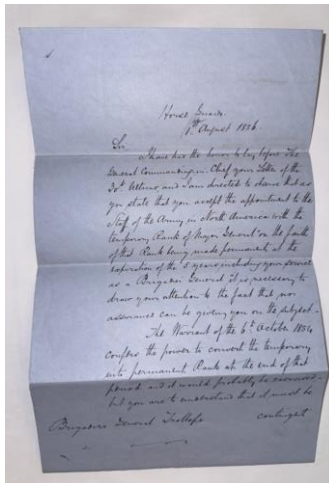 Horse Guards.
1st August 1856.
Sir
I have had the honor to lay before The
General Commanding in Chief your letter of the
30th Ultimo, and I am directed to observe that as
you state that you accept the appointment to the
Staff of the Army in North America with the
temporary Rank of Major General on the faith
of that Rank being made permanent at the
expiration of the 5 years including your service
as a Brigadier General it is necessary to
draw your attention to the fact that
assurance can be given you on the subject.
The Warrant of the 6th October 1854,
confers the power to convert the temporary
into permanent Rank at the end of that
period, and it would probably be exercised
but you are to understand that it must be
Brigadier General Trollope
contingent